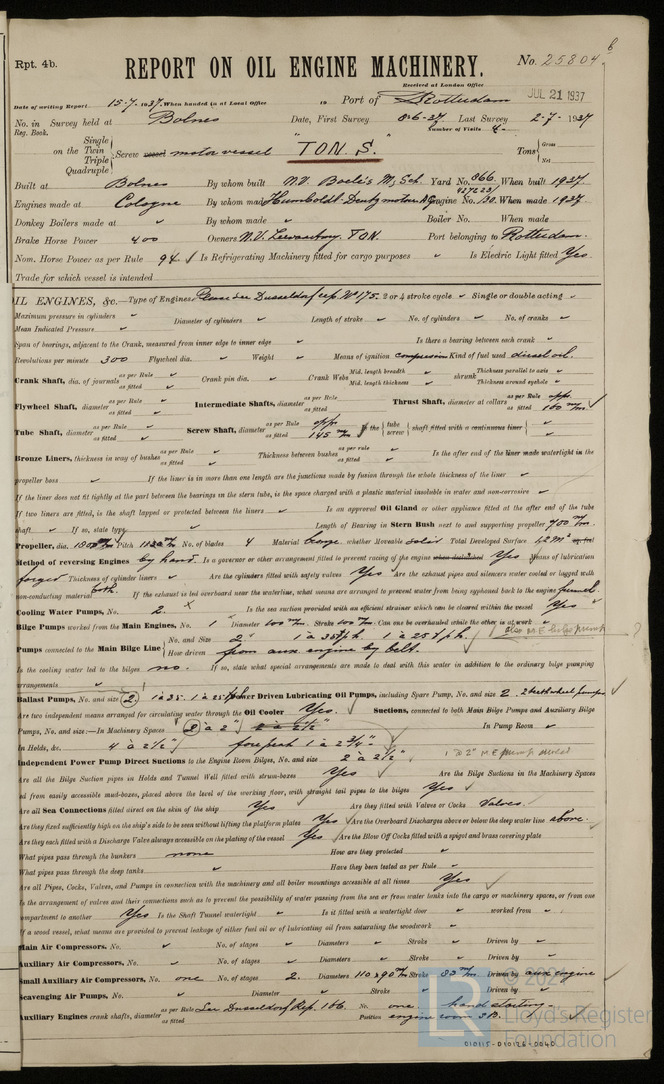 Rpt. 4b.
REPORT ON OIL ENGINE MACHINERY.
No. 25804
Received at London Office
JUL 21 1937
Date of writing Report 15-7-1937. When handed in at Local Office 19 Port of Rotterdam
No. in Survey held at Bolnes Date, First Survey 8-6-37 Last Survey 2-7-1937
Reg. Book. Number of Visits 4
Single
on the Twin
Triple
Quadruple
Screw vessel motor vessel "TON. S." Tons Gross
Net
Built at Bolnes By whom built N.V. Boele's M. Sch. Yard No. 866 When built 1937
Engines made at Cologne By whom made Humboldt-Deutz motoren A.G. Engine No. When made 1937
Donkey Boilers made at By whom made Boiler No. When made
Brake Horse Power 400 Owners N.V. TON. Port belonging to Rotterdam.
Nom. Horse Power as per Rule 94 Is Refrigerating Machinery fitted for cargo purposes Is Electric Light fitted Yes
Trade for which vessel is intended
OIL ENGINES, &c.—Type of Engines Please see Dusseldorf rep. No 175. 2 or 4 stroke cycle Single or double acting
Maximum pressure in cylinders Diameter of cylinders Length of stroke No. of cylinders No. of cranks
Mean Indicated Pressure
Span of bearings, adjacent to the Crank, measured from inner edge to inner edge Is there a bearing between each crank
Revolutions per minute 300 Flywheel dia. Weight Means of ignition compression Kind of fuel used diesel oil.
Crank Shaft, dia. of journals as per Rule as fitted Crank pin dia. Crank Webs Mid. length breadth Mid. length thickness shrunk Thickness parallel to axis Thickness around eyehole
Flywheel Shaft, diameter as per Rule as fitted Intermediate Shafts, diameter as per Rule as fitted Thrust Shaft, diameter at collars as per Rule app. as fitted 160 m/m
Tube Shaft, diameter as per Rule as fitted Screw Shaft, diameter as per Rule app. as fitted 145 m/m Is the tube screw shaft fitted with a continuous liner
Bronze Liners, thickness in way of bushes as per Rule as fitted Thickness between bushes as per rule as fitted Is the after end of the liner made watertight in the
propeller boss If the liner is in more than one length are the junctions made by fusion through the whole thickness of the liner
If the liner does not fit tightly at the part between the bearings in the stern tube, is the space charged with a plastic material insoluble in water and non-corrosive
If two liners are fitted, is the shaft lapped or protected between the liners Is an approved Oil Gland or other appliance fitted at the after end of the tube
shaft If so, state type Length of Bearing in Stern Bush next to and supporting propeller 700 m/m.
Propeller, dia. 1800 m/m Pitch No. of blades 4 Material bronze whether Moveable solid Total Developed Surface 1,2 M² sq. feet
Method of reversing Engines by hand. Is a governor or other arrangement fitted to prevent racing of the engine when declutched Yes Means of lubrication
forced Thickness of cylinder liners Are the cylinders fitted with safety valves Yes Are the exhaust pipes and silencers water cooled or lagged with
non-conducting material both. If the exhaust is led overboard near the waterline, what means are arranged to prevent water from being syphoned back to the engine funnel.
Cooling Water Pumps, No. 2. Is the sea suction provided with an efficient strainer which can be cleared within the vessel Yes
Bilge Pumps worked from the Main Engines, No. 1 Diameter 100 m/m. Stroke 100 m/m. Can one be overhauled while the other is at work
also M.E bilge pump
Pumps connected to the Main Bilge Line No. and Size 2" 1 à 35 t/p.h. 1 à 25 t/p.h.
How driven from aux engine by belt.
Is the cooling water led to the bilges no. If so, state what special arrangements are made to deal with this water in addition to the ordinary bilge pumping
arrangements
Ballast Pumps, No. and size 2 1 à 35. 1 à 25 t/p.h. Power Driven Lubricating Oil Pumps, including Spare Pump, No. and size 2.
Are two independent means arranged for circulating water through the Oil Cooler Yes. Suctions, connected to both Main Bilge Pumps and Auxiliary Bilge
Pumps, No. and size:—In Machinery Spaces 2 à 2" 2 à 2½" In Pump Room
In Holds, &c. 4 à 2½" forepeak 1 à 2¾"
Independent Power Pump Direct Suctions to the Engine Room Bilges, No. and size 2 à 2½"
Are all the Bilge Suction pipes in Holds and Tunnel Well fitted with strum-boxes Yes Are the Bilge Suctions in the Machinery Spaces
led from easily accessible mud-boxes, placed above the level of the working floor, with straight tail pipes to the bilges Yes
Are all Sea Connections fitted direct on the skin of the ship Yes Are they fitted with Valves or Cocks Valves.
Are they fixed sufficiently high on the ship's side to be seen without lifting the platform plates Yes Are the Overboard Discharges above or below the deep water line above.
Are they each fitted with a Discharge Valve always accessible on the plating of the vessel Yes Are the Blow Off Cocks fitted with a spigot and brass covering plate
What pipes pass through the bunkers none How are they protected
What pipes pass through the deep tanks Have they been tested as per Rule
Are all Pipes, Cocks, Valves, and Pumps in connection with the machinery and all boiler mountings accessible at all times Yes
Is the arrangement of valves and their connections such as to prevent the possibility of water passing from the sea or from water tanks into the cargo or machinery spaces, or from one
compartment to another Yes Is the Shaft Tunnel watertight Is it fitted with a watertight door worked from
If a wood vessel, what means are provided to prevent leakage of either fuel oil or of lubricating oil from saturating the woodwork
Main Air Compressors, No. No. of stages Diameters Stroke Driven by
Auxiliary Air Compressors, No. No. of stages Diameters Stroke Driven by
Small Auxiliary Air Compressors, No. one No. of stages 2. Diameters 110 x 90 m/m Stroke 85 m/m Driven by aux engine
Scavenging Air Pumps, No. Diameter Stroke Driven by
Auxiliary Engines crank shafts, diameter as per Rule as fitted See Dusseldorf Rep. 166. No. one hand starting.
Position engine room S.B.
© 202
LR
Lloyd's Register
Foundation
010115-010126-0040